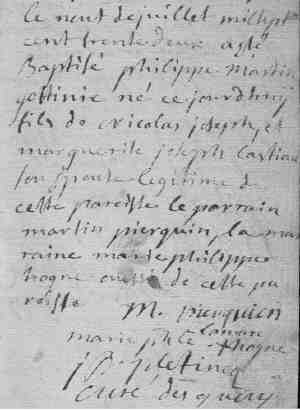 le neuf de juillet mil sept
cent trente deux a esté
Baptisé philippe martin
né ce jourdhuy
fils de Nicolas joseph et
marguerite joseph
son epouse legitime de
cette paroisse le parrain
martin pierquin, la mar
raine marie philippe
hogne aussi de cette pa
roisse
M. pierquien
marie phle hogne
curé des